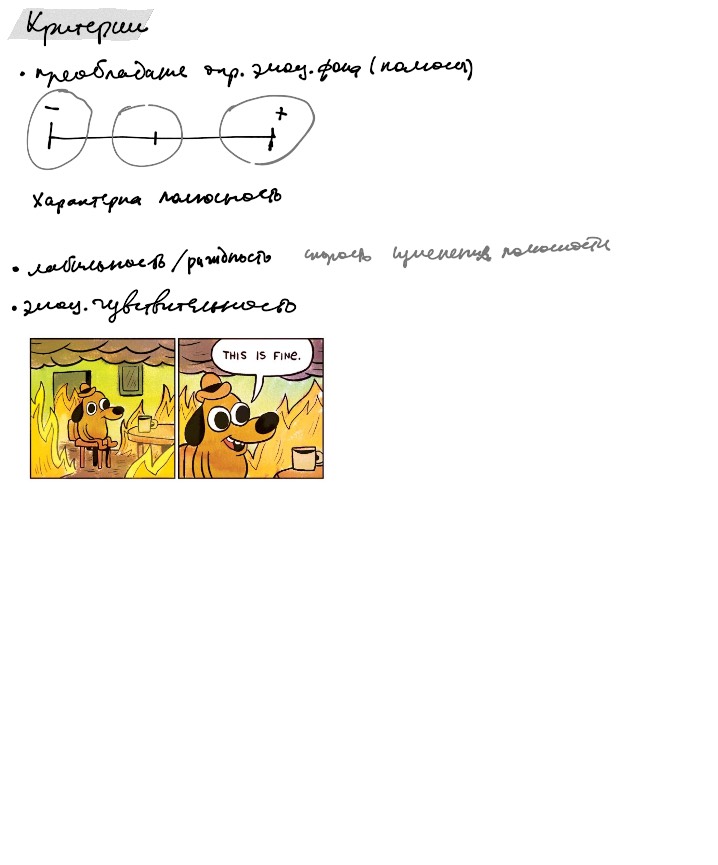 Критерии
• преобладание опр. эмоц. фона (полюса)
− +
Характерна полюсность
• лабильность/ригидность скорость изменения полюсности
• эмоц. чувствительность
THIS IS FINE.